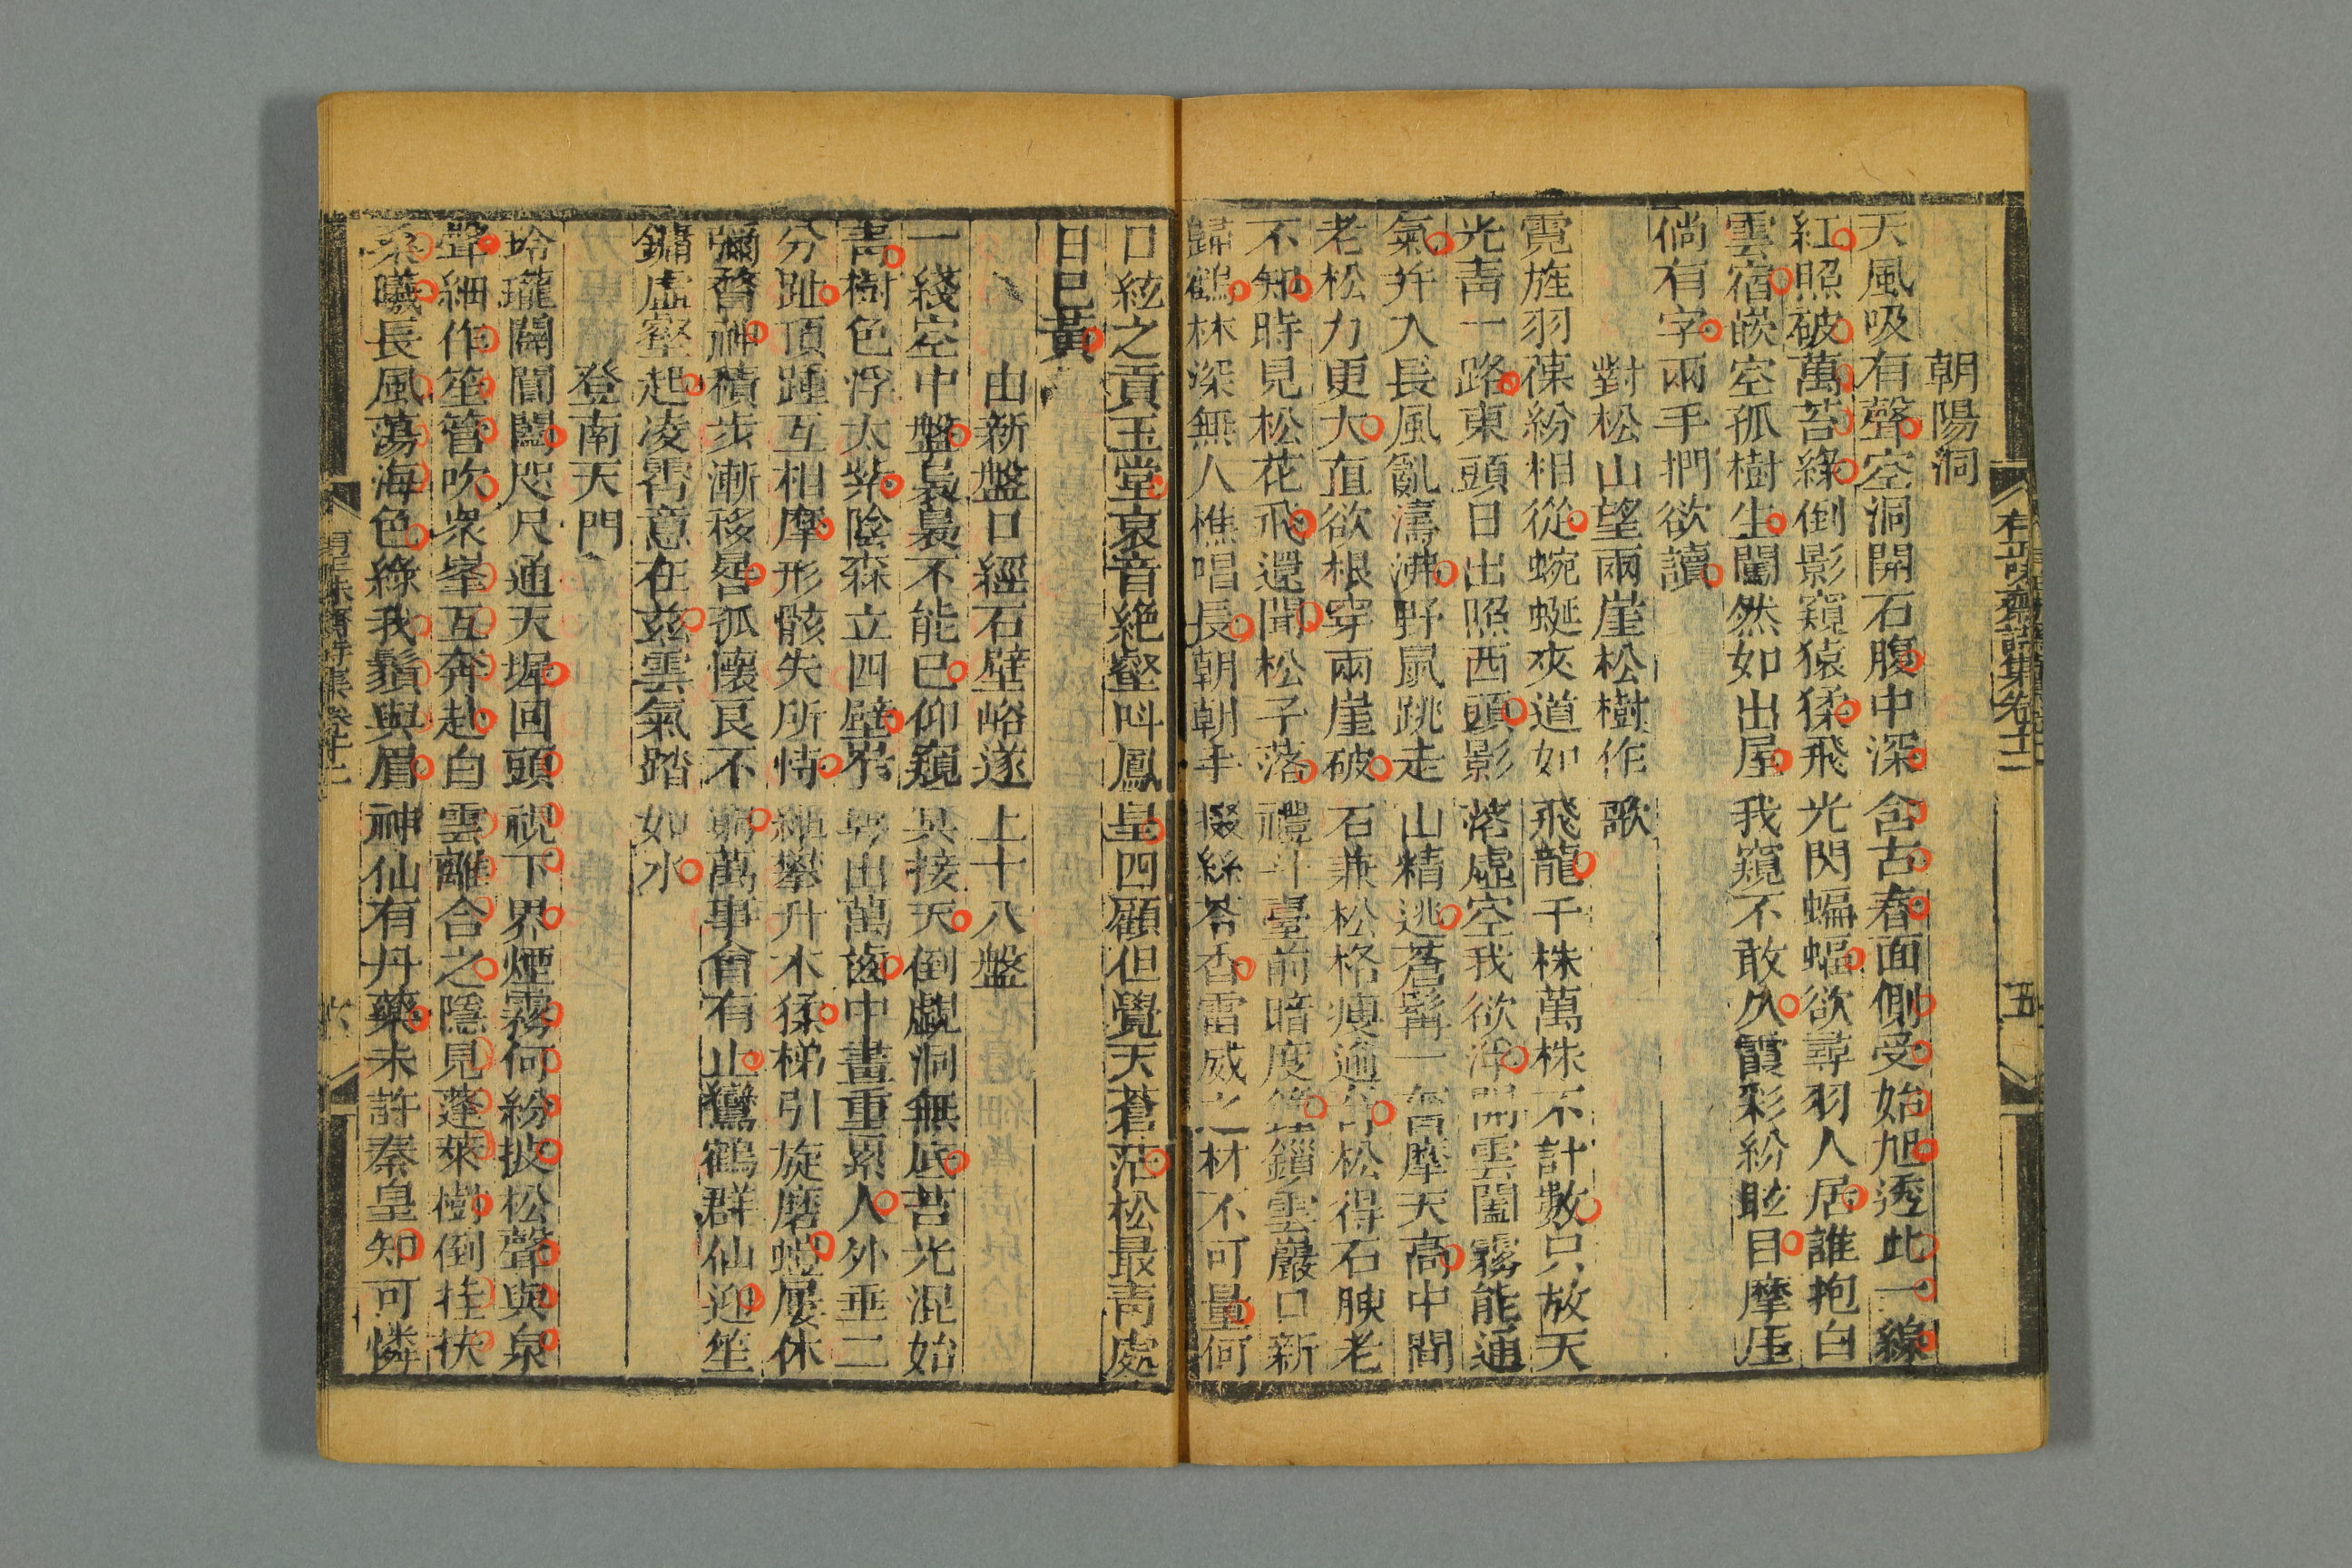 有正味齋詩集卷十二
五
朝陽洞
天風吸有聲空洞開石腹中深含古春面側受始旭透此一線
紅照破萬苔綠倒影窺猿猱飛光閃蝙蝠欲尋羽人居誰抱白
雲宿嵌空孤樹生闖然如出屋我窺不敢久霞彩紛眩目摩厓
倘有字兩手捫欲讀
對松山望兩崖松樹作歌
霓旌羽葆紛相從蜿蜒夾道如飛龍千株萬株不計數只放天
光青一路東頭日出照西頭影落虛空我欲浮開雲闔霧能通
氣幷入長風亂濤沸野鼠跳走山精逃蒼髯一奮摩天高中間
老松力更大直欲根穿兩崖破石兼松格瘦逾奇松得石腴老
不知時見松花飛還聞松子落禮斗臺前暗度鐘鎖雲巖口新
歸鶴林深無人樵唱長朝朝手掇絲苓香雷威之材不可量何
日絃之貢玉堂哀音絶壑叫鳳皇四顧但覺天蒼茫松最青處
日已黃
由新盤口經石壁峪遂上十八盤
一綫空中盤裊裊不能已仰窺具接天倒覷洞無底苔光混始
青樹色浮太紫陰森立四壁岝崿出萬齒中畫重累人外垂二
分趾頂踵互相摩形骸失所恃縆攀升木猱梯引旋磨螘屢休
彌瞀神積步漸移晷孤懷良不窮萬事會有止鸞鶴群仙迎笙
鏞虛壑起凌霄意在茲雲氣踏如水
登南天門
玲瓏闢閶闔咫尺通天墀回頭視下界煙霧何紛披松聲與泉
聲細作笙管吹衆峯互奔赴白雲離合之隱見蓬萊樹倒挂扶
桑曦長風蕩海色綠我鬚與眉神仙有丹藥未許秦皇知可憐
有正味齋詩集卷十二
六